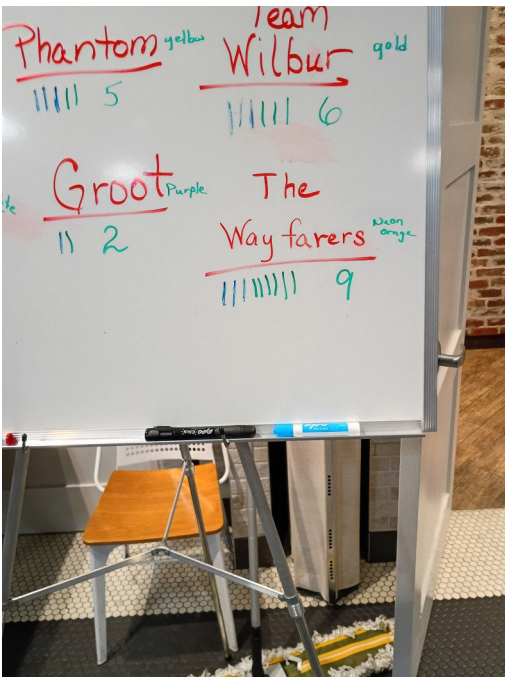 Phantom yellow
5
Team
Wilbur gold
6
Groot Purple
2
The
Wayfarers Neon
orange
9
EXPO